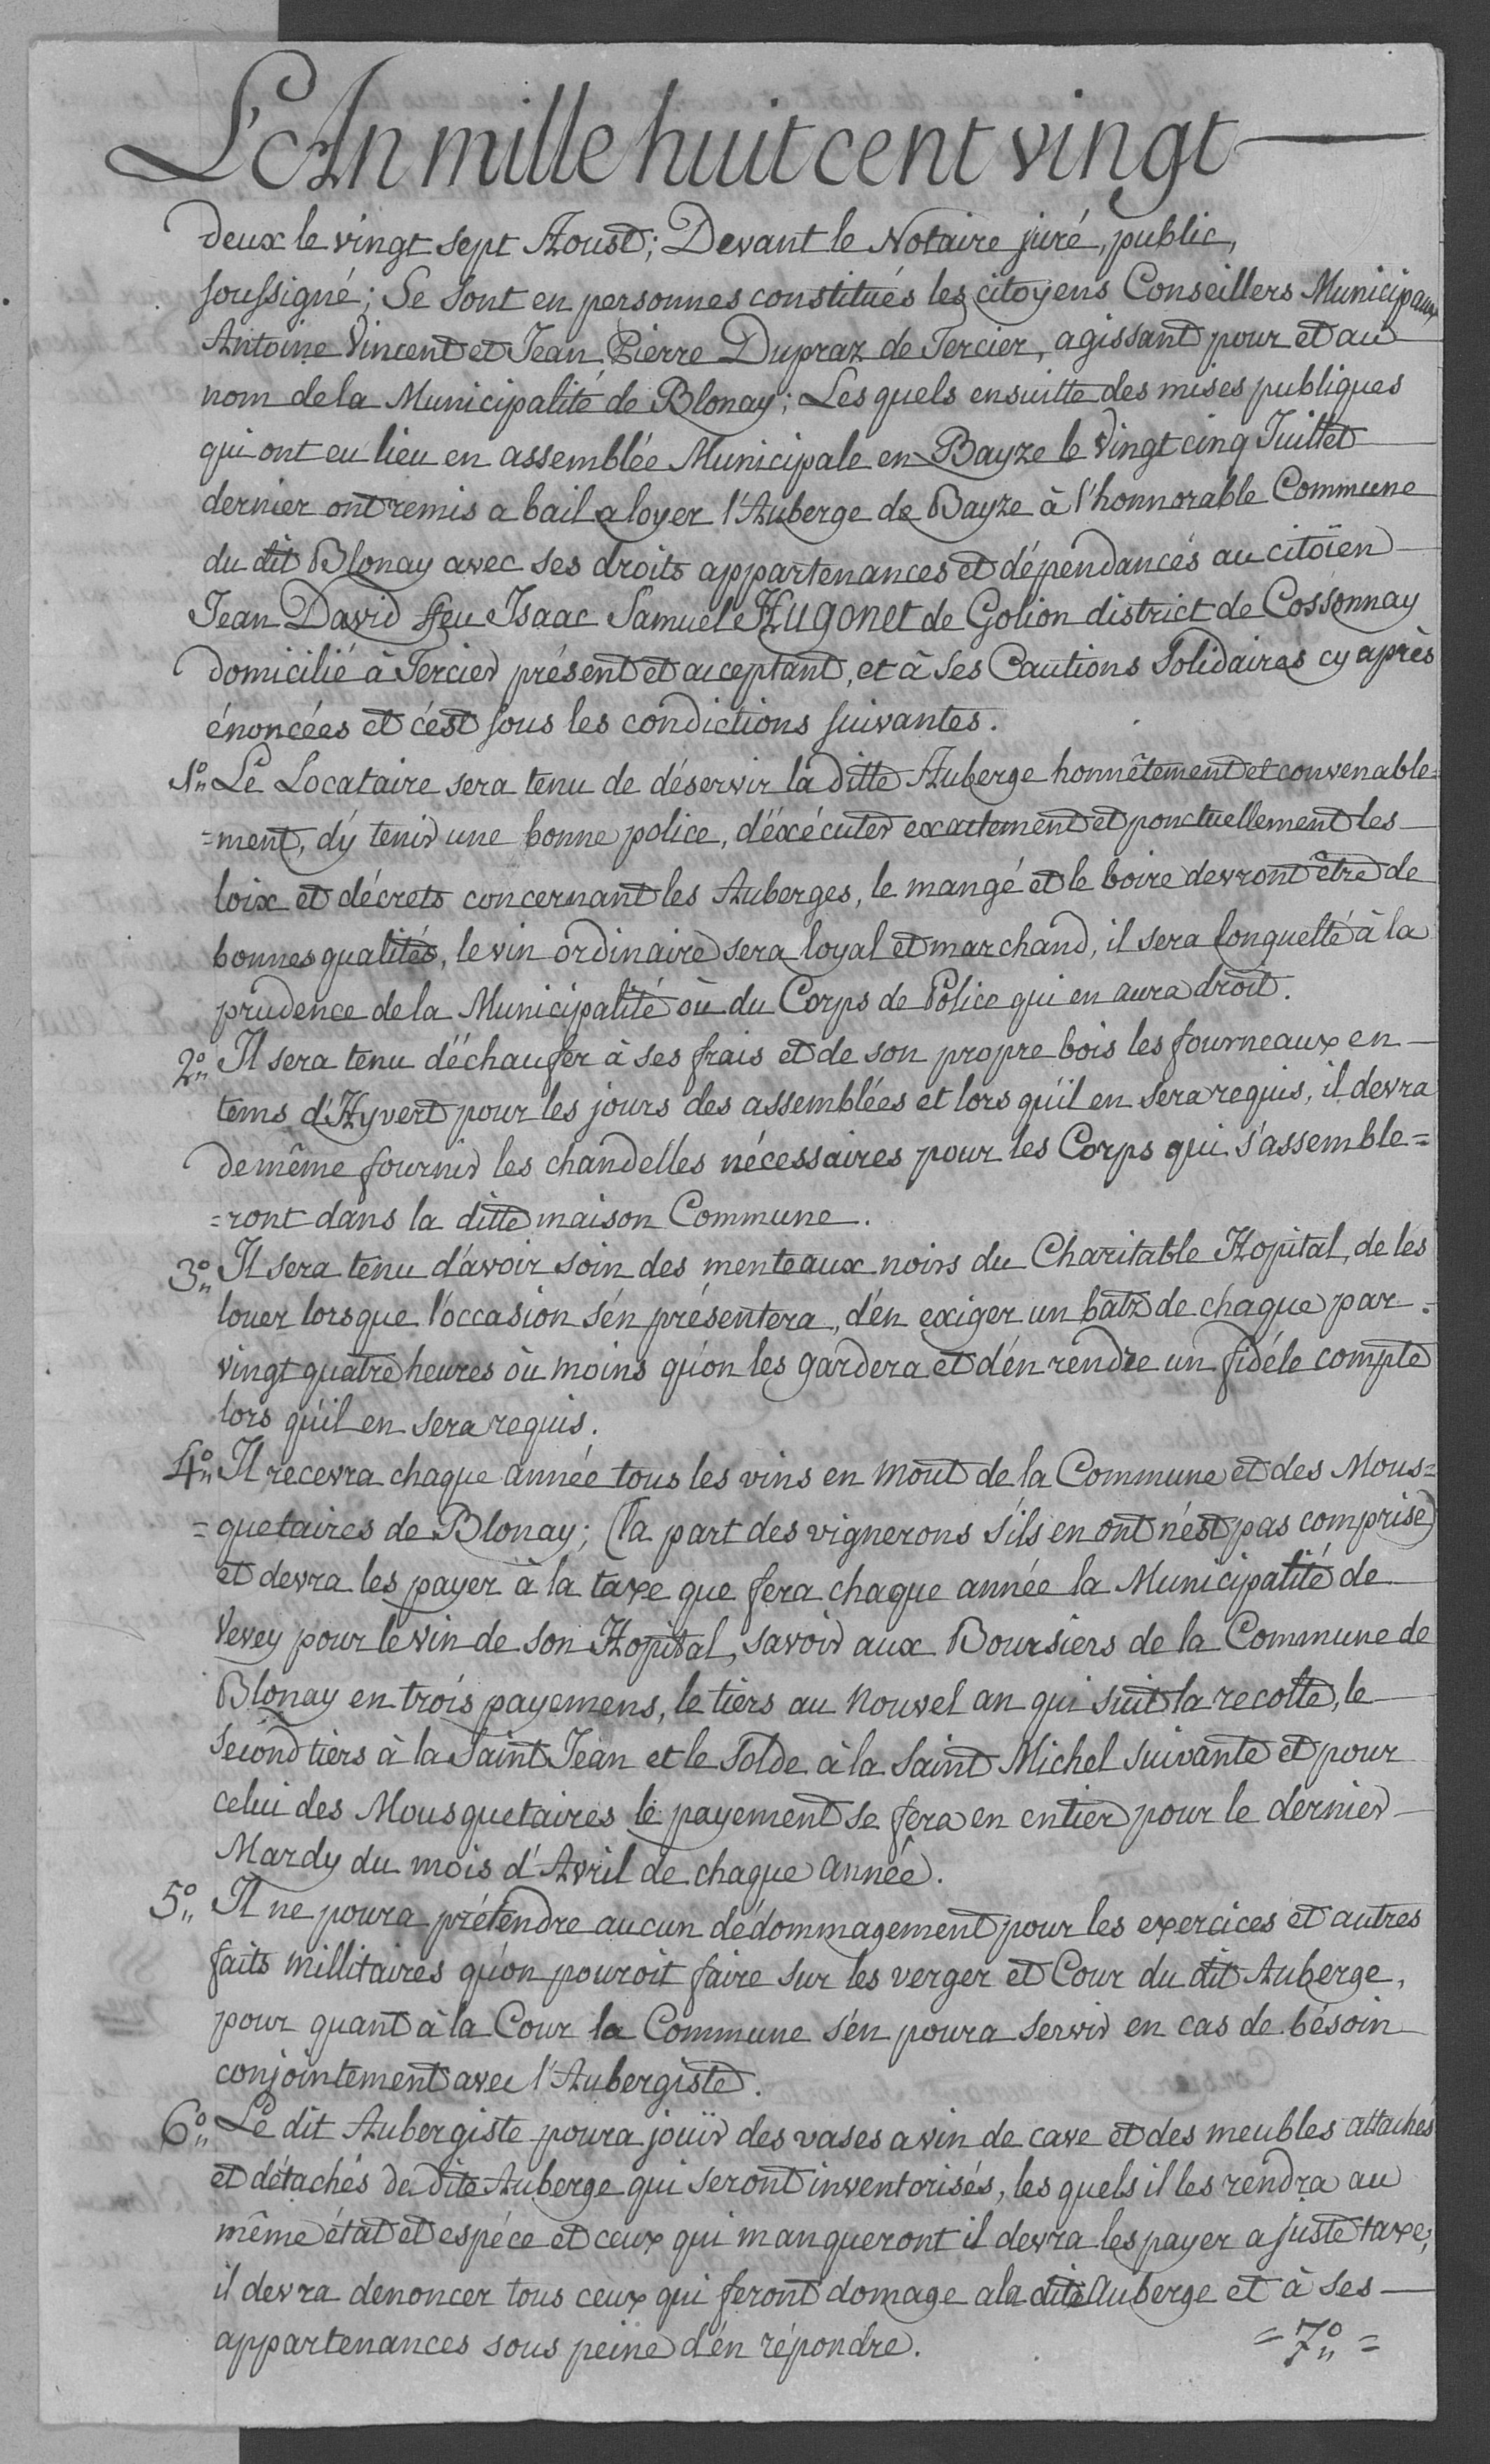 L'An mille huit cent vingt
deux le vingt sept Aoust; Devant le Notaire juré, public,
soussigné; Se sont en personnes constitués les citoyens Conseillers Municipaux
Antoine Vincent et Jean Pierre Dupraz de Tercier, agissant pour et au
nom de la Municipalité de Blonay; Les quels ensuitte des mises publiques
qui ont eu lieu en assemblée Municipale en Bayze le Vingt cinq Juillet
dernier ont remis a bail a loyer l'Auberge de Bayze à l'honnorable Commune
du dit Blonay avec ses droits appartenances et dépendancés au citoïen
Jean David feu Isaac Samuel Hugonet de Golion district de Cossonnay
domicilié à Tercier présent et acceptant, et à ses Cautions Solidaires cy après
énoncées et c'est sous les condictions suivantes.
1º Le Locataire sera tenu de désservir la ditte Auberge honnêtement et convenable=
=ment, d'y tenir une bonne police, d'éxécuter exactement et ponctuellement les
loix et décrets concernant les Auberges, le mangé et le boire devront être de
bonnes qualités, le vin ordinaire sera loyal et marchand, il sera longuetté à la
prudence de la Municipalité où du Corps de Police qui en aura droit.
2º Il sera tenu d'échaufer à ses frais et de son propre bois les fourneaux en
tems d'Hyvert pour les jours des assemblées et lors qu'il en sera requis, il devra
de même fournir les chandelles nécessaires pour les Corps qui s'assemble=
=ront dans la ditte maison Commune.
3º Il sera tenu d'avoir soin des menteaux noirs du Charitable Hopital, de les
louer lorsque l'occasion s'en présentera, d'én exiger un batz de chaque par
vingt quatre heures où moins qu'on les gardera et d'én rendre un fidéle compte
lors qu'il en sera requis.
4º Il recevra chaque année tous les vins en mout de la Commune et des Mous=
=quetaires de Blonay; (la part des vignerons s'ils en ont n'est pas comprise)
et devra les payer à la taxe que fera chaque année la Municipalité de
Vevey pour le vin de son Hopital, savoir aux Boursiers de la Commune de
Blonay en trois payemens, le tiers au Nouvel an qui suit la recolte, le
second tiers à la Saint Jean et le Solde à la Saint Michel suivante et pour
celui des Mousquetaires le payement se fera en entier pour le dernier
Mardy du mois d'Avril de chaque année.
5º Il ne poura prétendre aucun dédommagement pour les exercices et autres
faits millitaires qu'on pouroit faire sur les verger et Cour du dit Auberge,
pour quant à la Cour la Commune s'én poura servir en cas de bésoin
conjointement avec l'Aubergiste.
6º Le dit Aubergiste poura jouïr des vases a vin de cave et des meubles attachés
et détachés de dite Auberge qui seront inventorisés, les quels il les rendra au
même état et espéce et ceux qui manqueront il devra les payer a juste taxe,
il devra denoncer tous ceux qui feront domage a la dite Auberge et à ses
appartenances sous peine d'én répondre.
= 7º =